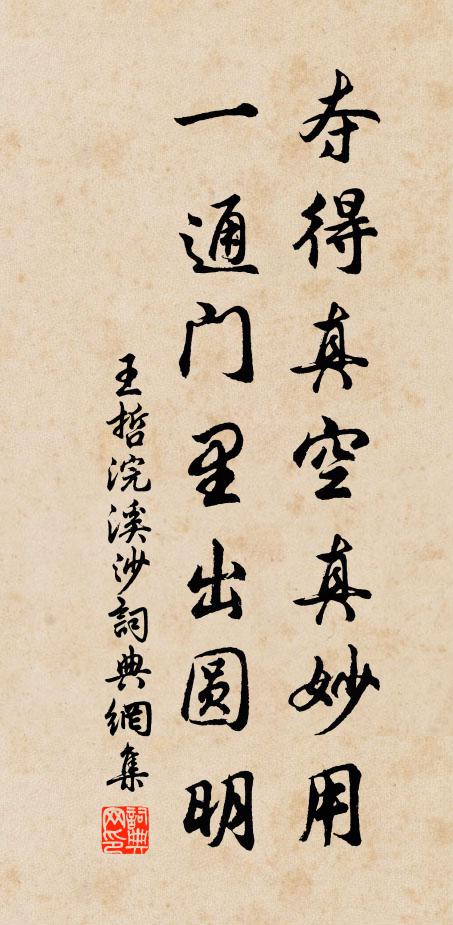 夺得真空真妙用
一通门里出圆明
王哲浣溪沙詞典網集
詞典网印